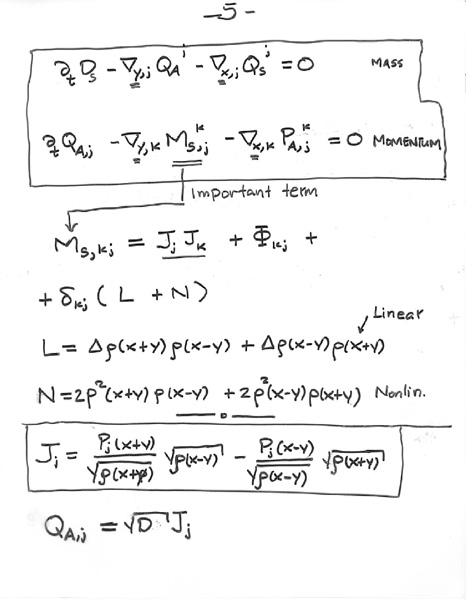 -5-
∂ₜ Dₛ - ∇y,j Q_A^j - ∇x,j Qₛ^j = 0 MASS
∂ₜ Q_A,j - ∇y,k M_S,j^k - ∇x,k P_A,j^k = 0 MOMENTUM
Important term
M_S,kj = J_j J_k + Φ_kj +
+ δ_kj ( L + N )
Linear
L = Δρ(x+y) ρ(x-y) + Δρ(x-y) ρ(x+y)
N = 2ρ²(x+y) ρ(x-y) + 2ρ²(x-y) ρ(x+y) Nonlin.
J_j = P_j(x+y)/√ρ(x+y) √ρ(x-y) - P_j(x-y)/√ρ(x-y) √ρ(x+y)
Q_A,j = √D J_j